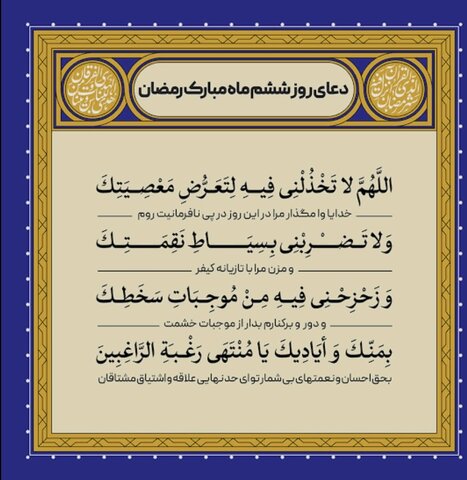 دعای روز ششم ماه مبارک رمضان
اللَّهُمَّ لا تَخْذُلْنِی فِیهِ لِتَعَرُّضِ مَعْصِیَتِکَ
خدایا وا مگذار مرا در این روز در پی نافرمانیت روم
وَلا تَضْرِبْنِی بِسِیَاطِ نَقِمَتِکَ
و مزن مرا با تازیانه کیفر
وَ زَحْزِحْنِی فِیهِ مِنْ مُوجِبَاتِ سَخَطِکَ
و دور و برکنارم بدار از موجبات خشمت
بِمَنِّکَ وَ أَیَادِیکَ یَا مُنْتَهَی رَغْبَةِ الرَّاغِبِینَ
بحق احسان و نعمتهای بی شمار تو ای حد نهایی علاقه و اشتیاق مشتاقان